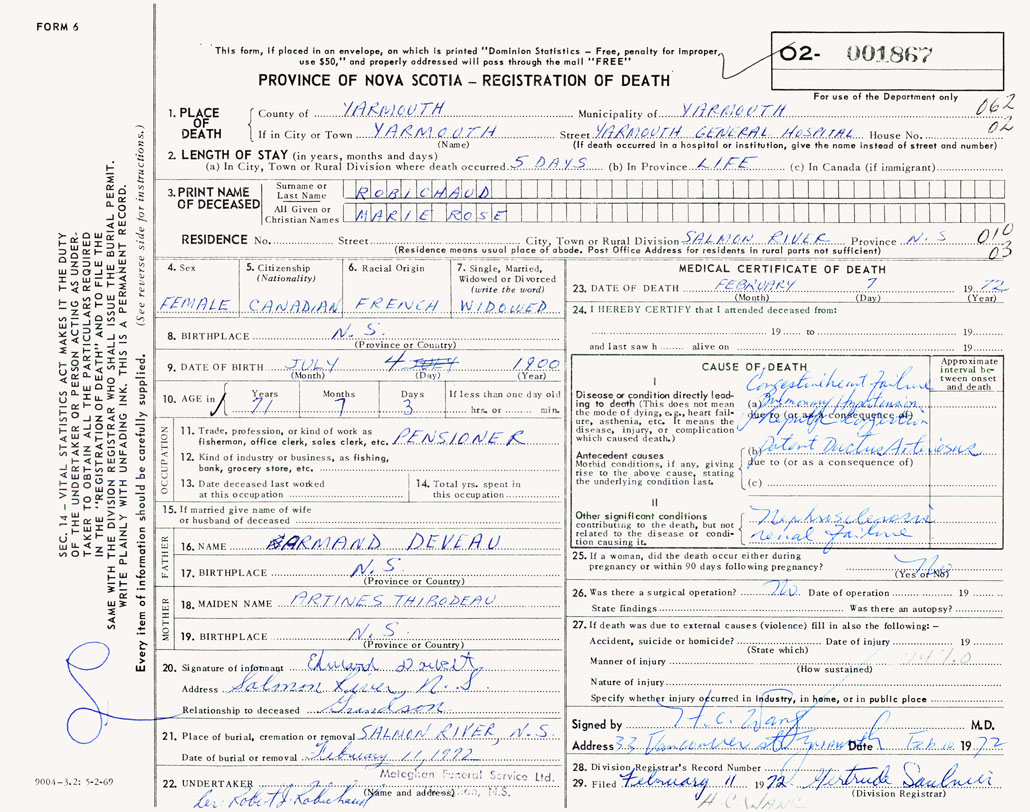 FORM 6
This form, if placed in an envelope, on which is printed "Dominion Statistics – Free, penalty for improper
use $50," and properly addressed will pass through the mail "FREE"
O2- 001867
For use of the Department only
PROVINCE OF NOVA SCOTIA – REGISTRATION OF DEATH
1. PLACE OF DEATH
County of YARMOUTH Municipality of YARMOUTH 062
If in City or Town YARMOUTH Street YARMOUTH GENERAL HOSPITAL House No. 02
(Name) (If death occurred in a hospital or institution, give the name instead of street and number)
2. LENGTH OF STAY (in years, months and days)
(a) In City, Town or Rural Division where death occurred 5 DAYS (b) In Province LIFE (c) In Canada (if immigrant)
3. PRINT NAME OF DECEASED
Surname or Last Name ROBICHAUD
All Given or Christian Names MARIE ROSE
RESIDENCE No. Street City, Town or Rural Division SALMON RIVER Province N.S 010
(Residence means usual place of abode. Post Office Address for residents in rural parts not sufficient) 03
4. Sex
FEMALE
5. Citizenship
(Nationality)
CANADIAN
6. Racial Origin
FRENCH
7. Single, Married,
Widowed or Divorced
(write the word)
WIDOWED
8. BIRTHPLACE N.S.
(Province or Country)
9. DATE OF BIRTH JULY 4 JULY 1900
(Month) (Day) (Year)
10. AGE in Years Months Days If less than one day old
71 7 3 hrs. or min.
OCCUPATION
11. Trade, profession or kind of work as
fisherman, office clerk, sales clerk, etc. PENSIONER
12. Kind of industry or business, as fishing,
bank, grocery store, etc.
13. Date deceased last worked
at this occupation
14. Total yrs. spent in
this occupation
15. If married give name of wife
or husband of deceased
FATHER
16. NAME ARMAND DEVEAU
17. BIRTHPLACE N.S.
(Province or Country)
MOTHER
18. MAIDEN NAME ARTINES THIBODEAU
19. BIRTHPLACE N.S.
(Province or Country)
20. Signature of informant Edward
Address Salmon River, N.S.
Relationship to deceased Grandson
21. Place of burial, cremation or removal SALMON RIVER, N.S.
Date of burial or removal February 11, 1972
22. UNDERTAKER Meteghan Funeral Service Ltd.
(Name and address) N.S.
Per: Robert J. Robichaud
MEDICAL CERTIFICATE OF DEATH
23. DATE OF DEATH FEBRUARY 7 1972
(Month) (Day) (Year)
24. I HEREBY CERTIFY that I attended deceased from:
19 to 19
and last saw h alive on 19
CAUSE OF DEATH
Approximate
interval be-
tween onset
and death
I
Disease or condition directly lead-
ing to death (This does not mean
the mode of dying, e.g., heart fail-
ure, asthenia, etc. It means the
disease, injury, or complication
which caused death.)
Congestive heart failure
(a) Pulmonary Hypertension
due to (or as a consequence of)
Hepatic Congestion
Antecedent causes
Morbid conditions, if any, giving
rise to the above cause, stating
the underlying condition last.
(b) Patent Ductus Arteriosus
due to (or as a consequence of)
(c)
II
Other significant conditions
contributing to the death, but not
related to the disease or condi-
tion causing it.
Nephrosclerosis
renal failure
25. If a woman, did the death occur either during
pregnancy or within 90 days following pregnancy? No
(Yes or No)
26. Was there a surgical operation? No. Date of operation 19
State findings Was there an autopsy?
27. If death was due to external causes (violence) fill in also the following: –
Accident, suicide or homicide? Date of injury 19
(State which)
Manner of injury
(How sustained)
Nature of injury
Specify whether injury occurred in industry, in home, or in public place
Signed by H.C. Wang M.D.
Address 33 Vancouver St Yarmouth Date Feb. 10 1972
28. Division Registrar's Record Number
29. Filed February 11 1972. Gertrude Saulnier
(Division Registrar)
H.C. WANG
SEC. 14 – VITAL STATISTICS ACT MAKES IT THE DUTY
OF THE UNDERTAKER OR PERSON ACTING AS UNDER-
TAKER TO OBTAIN ALL THE PARTICULARS REQUIRED
IN THE "REGISTRATION OF DEATH" AND TO FILE THE
SAME WITH THE DIVISION REGISTRAR WHO SHALL ISSUE THE BURIAL PERMIT.
WRITE PLAINLY WITH UNFADING INK. THIS IS A PERMANENT RECORD.
Every item of information should be carefully supplied. (See reverse side for instructions.)
9004-3.2: 5-2-69